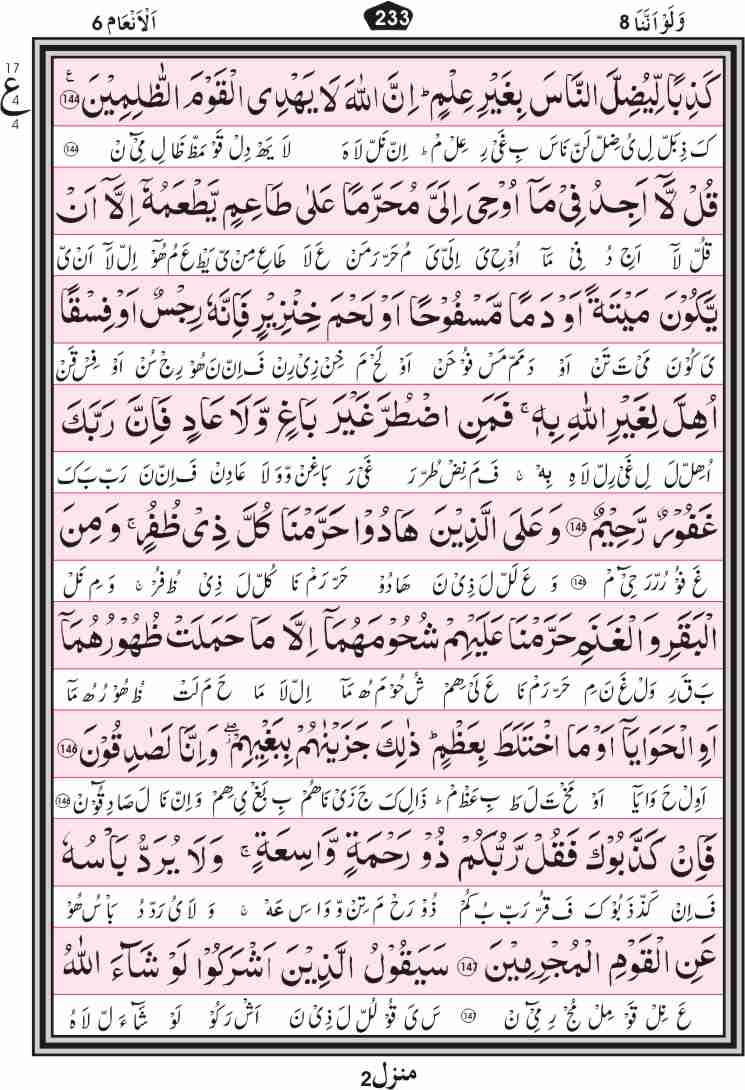 وَلَوْ اَنَّنَا 8
233
اَلْاَنْعَام 6
كَذِبًا لِّيُضِلَّ النَّاسَ بِغَيْرِ عِلْمٍ ؕ اِنَّ اللّٰهَ لَا يَهْدِى الْقَوْمَ الظّٰلِمِيْنَ ۧ 144
17
ع
4
4
كَ ذِ بَلْ لِ ىُ ضِلْ لَنْ نَاسَ بِ غَىْ رِ عِلْ مْ ؕ اِنْ نَلْ لَا هَ لَا يَهْ دِلْ قَوْ مَظْ ظَا لِ مِىْٓ نْ 144
قُلْ لَّاۤ اَجِدُ فِىْ مَاۤ اُوْحِىَ اِلَىَّ مُحَرَّمًا عَلٰى طَاعِمٍ يَّطْعَمُهٗۤ اِلَّاۤ اَنْ
قُلْ لَآ اَجِ دُ فِىْ مَآ اُوْحِ ىَ اِلَىْ ىَ مُ حَرْ رَمَنْ عَ لَا طَا عِ مِنْ ىَ يَطْ عَ مُ هُوْٓ اِلْ لَآ اَنْ ىَ
يَّكُوْنَ مَيْتَةً اَوْ دَمًا مَّسْفُوْحًا اَوْ لَحْمَ خِنْزِيْرٍ فَاِنَّهٗ رِجْسٌ اَوْ فِسْقًا
ىَ كُوْنَ مَىْ تَ تَنْ اَوْ دَ مَمْ مَسْ فُوْ حَنْ اَوْ لَحْ مَ خِنْ زِىْ رِنْ فَ اِنْ نَ هُوْ رِجْ سُنْ اَوْ فِسْ قَنْ
اُهِلَّ لِغَيْرِ اللّٰهِ بِهٖ ۚ فَمَنِ اضْطُرَّ غَيْرَ بَاغٍ وَّلَا عَادٍ فَاِنَّ رَبَّكَ
اُ هِلْ لَ لِ غَىْ رِلْ لَا هِ بِهْ ۚ فَ مَ نِضْ طُرْ رَ غَىْ رَ بَا غِنْ وَ وَ لَا عَادِنْ فَ اِنْ نَ رَبْ بَ كَ
غَفُوْرٌ رَّحِيْمٌ 145 وَعَلَى الَّذِيْنَ هَادُوْا حَرَّمْنَا كُلَّ ذِىْ ظُفُرٍ ۚ وَمِنَ
غَ فُوْ رُرْ رَ حِىْٓ مْ 145 وَ عَ لَلْ لَ ذِىْ نَ هَا دُوْ حَرْ رَمْ نَا كُلْ لَ ذِىْ ظُ فُرْ ۚ وَ مِ نَلْ
الْبَقَرِ وَالْغَنَمِ حَرَّمْنَا عَلَيْهِمْ شُحُوْمَهُمَاۤ اِلَّا مَا حَمَلَتْ ظُهُوْرُهُمَاۤ
بَ قَ رِ وَلْ غَ نَ مِ حَرْ رَمْ نَا عَ لَىْ هِمْ شُ حُوْ مَ هُ مَآ اِلْ لَا مَا حَ مَ لَتْ ظُ هُوْ رُ هُ مَآ
اَوِ الْحَوَايَاۤ اَوْ مَا اخْتَلَطَ بِعَظْمٍ ؕ ذٰلِكَ جَزَيْنٰهُمْ بِبَغْيِهِمْ ۖ وَاِنَّا لَصٰدِقُوْنَ 146
اَوِلْ حَ وَا يَآ اَوْ مَخْ تَ لَ طَ بِ عَظْ مْ ؕ ذَالِ كَ جَ زَىْ نَاهُمْ بِ بَغْ ىِ هِمْ وَ اِنْ نَا لَ صَادِ قُوْٓ نْ 146
فَاِنْ كَذَّبُوْكَ فَقُلْ رَّبُّكُمْ ذُوْ رَحْمَةٍ وَّاسِعَةٍ ۚ وَلَا يُرَدُّ بَاْسُهٗ
فَ اِنْ كَذْ ذَ بُوْ كَ فَ قُرْ رَبْ بُ كُمْ ذُوْ رَحْ مَ تِنْ وَ وَا سِ عَهْ ۚ وَ لَا ىُ رَدْ دُ بَاْ سُ هُوْ
عَنِ الْقَوْمِ الْمُجْرِمِيْنَ 147 سَيَقُوْلُ الَّذِيْنَ اَشْرَكُوْا لَوْ شَآءَ اللّٰهُ
عَ نِلْ قَوْ مِلْ مُجْ رِ مِىْٓ نْ 147 سَ ىَ قُوْ لُلْ لَ ذِىْ نَ اَشْ رَ كُوْ لَوْ شَآءَ لْ لَا هُ
منزل2